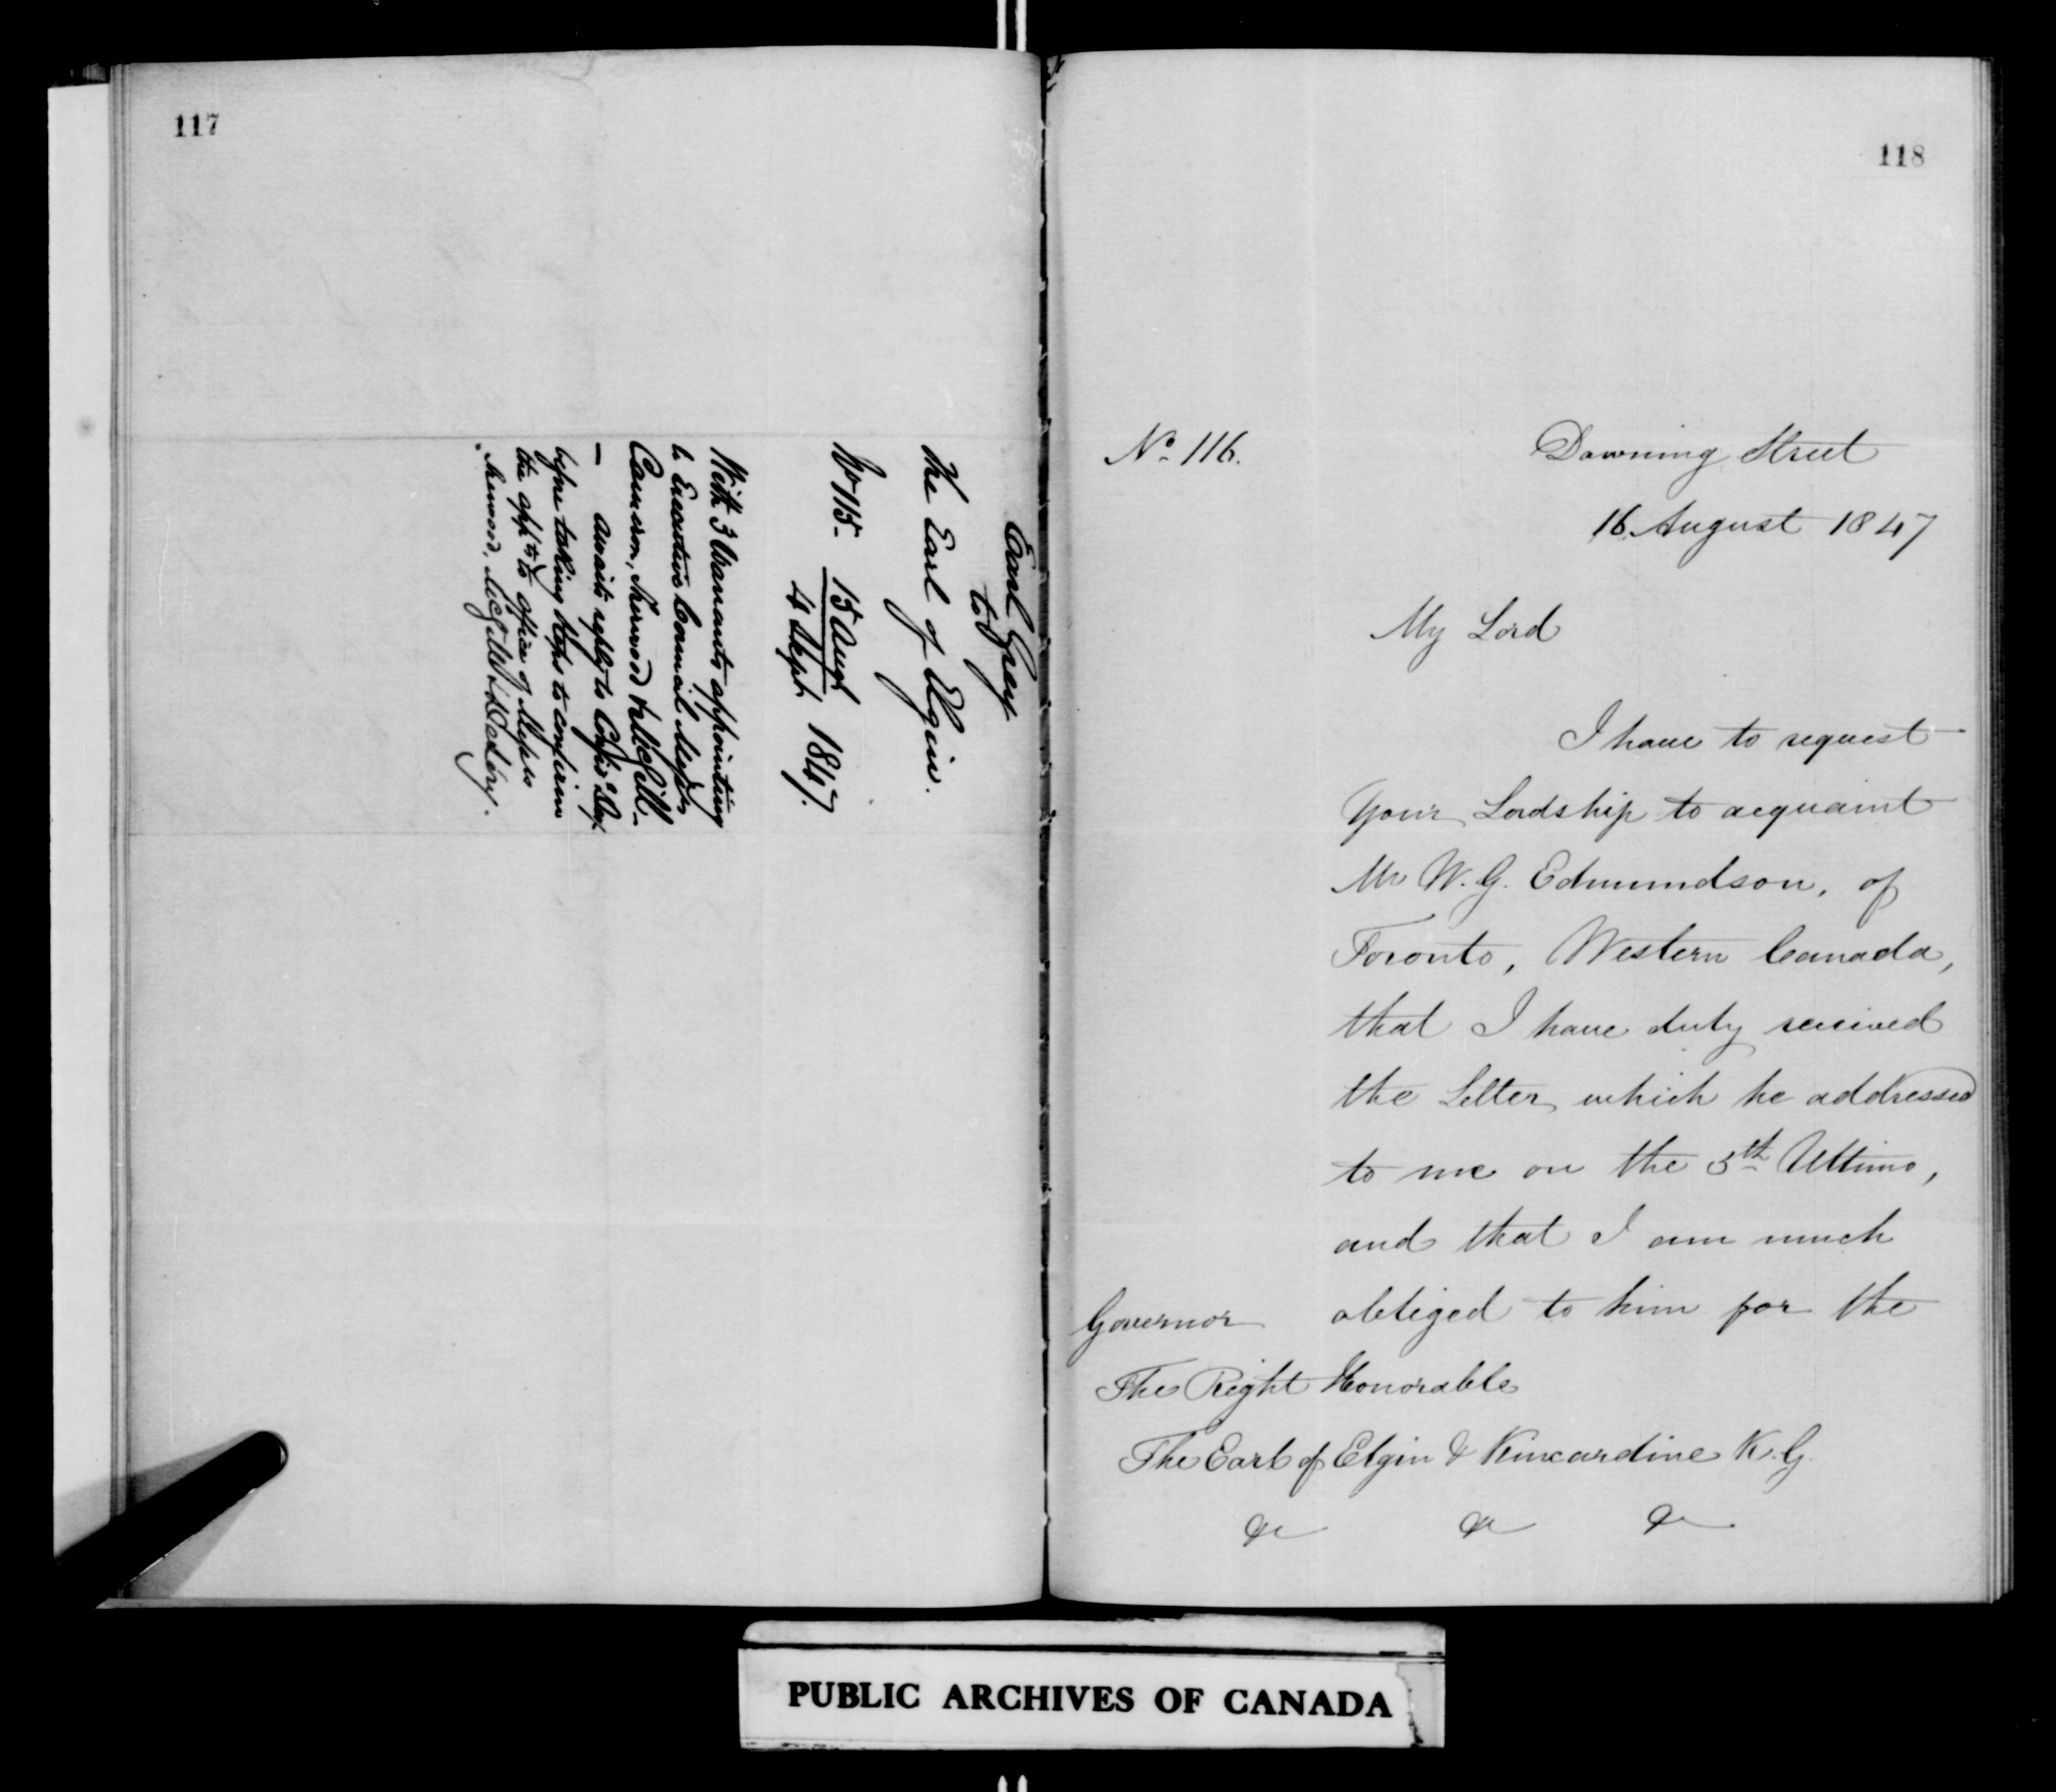 117
Earl Grey
to
The Earl of Elgin.
No 115 - 15 Augt
4 Sept. 1847.
With 3 Warrants appointing
to Executive Council Messrs
Cameron, Sherwood & McGill -
- Awaits reply to Desp.
before taking steps to confirm
the appts to office of Messrs
Sherwood, McGill &
118
No. 116.
Downing Street
16 August 1847
My Lord
I have to request
Your Lordship to acquaint
Mr W. G. Edmundson, of
Toronto, Western Canada,
that I have duly received
the Letter which he addressed
to me on the 5th Ultimo,
and that I am much
obliged to him for the
Governor
The Right Honorable
The Earl of Elgin & Kincardine K.G.
&c &c &c
PUBLIC ARCHIVES OF CANADA